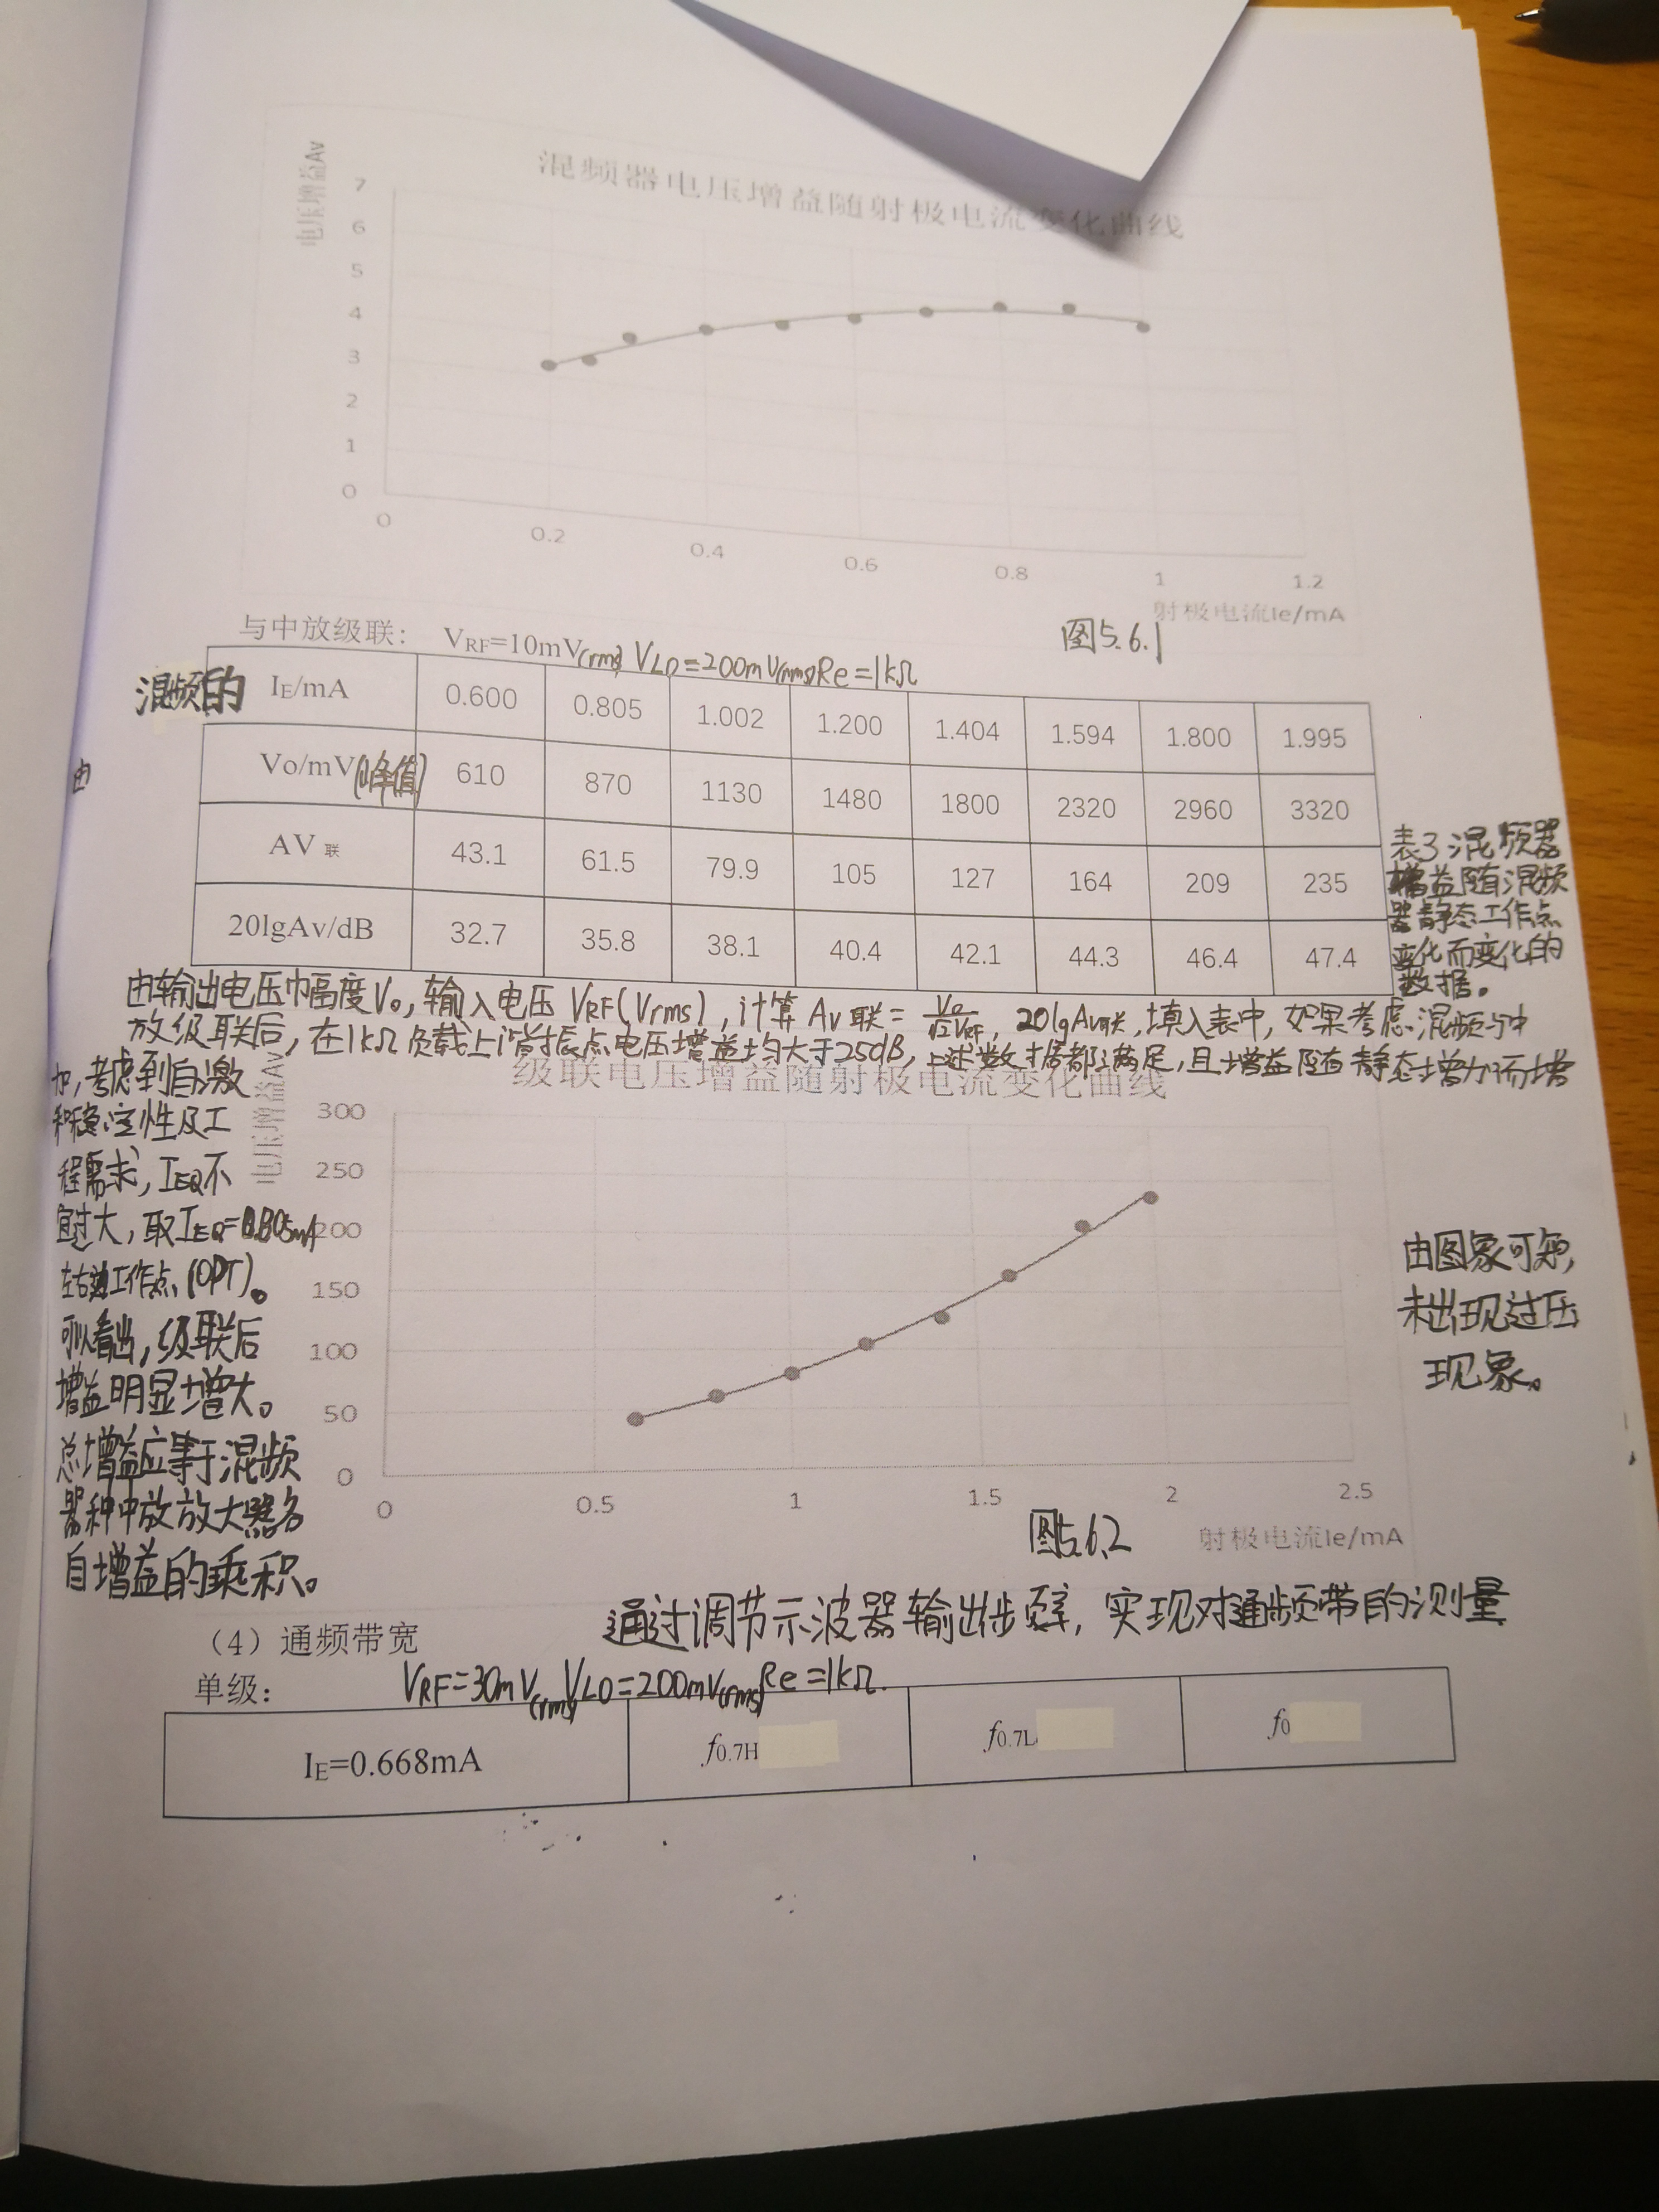 混频器电压增益随射极电流变化曲线
电压增益Av
7
6
5
4
3
2
1
0
0 0.2 0.4 0.6 0.8 1 1.2
射极电流Ie/mA
图5.6.1
与中放级联： VRF=10mV(rms) VLO=200mV(rms) Re=1kΩ
混频的 IE/mA 0.600 0.805 1.002 1.200 1.404 1.594 1.800 1.995
由
Vo/mV(峰值) 610 870 1130 1480 1800 2320 2960 3320
AV联 43.1 61.5 79.9 105 127 164 209 235
20lgAv/dB 32.7 35.8 38.1 40.4 42.1 44.3 46.4 47.4
表3 混频器
增益随混频
器静态工作点
变化而变化的
数据。
由输出电压巾幅度Vo，输入电压VRF(Vrms)，计算Av联=Vo/√2VRF，20lgAv联，填入表中，如果考虑混频与中
放级联后，在1kΩ负载上谐振点电压增益均大于25dB，上述数据都满足，且增益随有静态增加而增
加，考虑到自激
和稳定性及工
程需求，IEQ不
宜过大，取IEQ=0.805mA
左右为工作点(OPT)。
可以看出，级联后
增益明显增大。
总增益应等于混频
器和中放放大器各
自增益的乘积。
级联电压增益随射极电流变化曲线
电压增益Av
300
250
200
150
100
50
0
0 0.5 1 1.5 2 2.5
射极电流Ie/mA
图5.6.2
由图象可知，
未出现过压
现象。
（4）通频带宽
通过调节示波器输出步频率，实现对通频带的测量
单级： VRF=30mV(rms) VLO=200mV(rms) Re=1kΩ.
IE=0.668mA f0.7H f0.7L f0